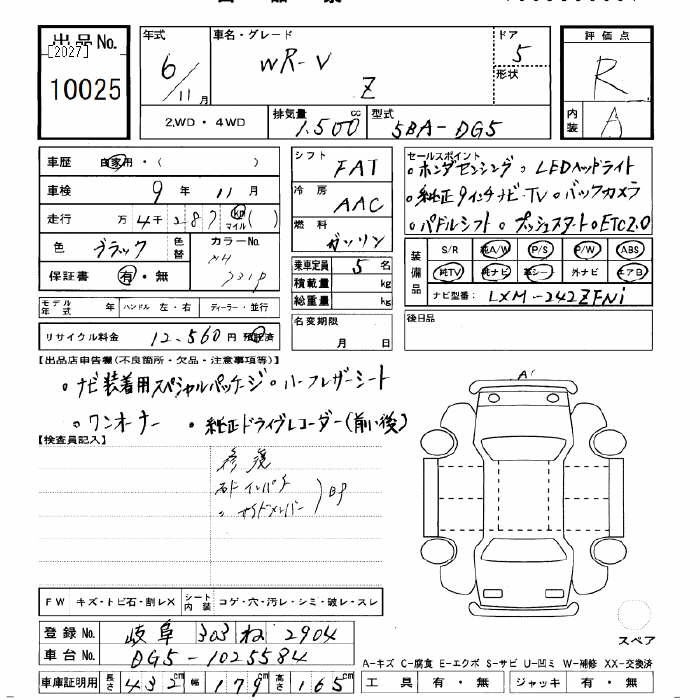 出品No.
[2027]
10025
年式
6/11月
車名・グレード
WR-V
Z
ドア
5
形状
評価点
R
内装
A
2.WD・4WD
排気量
1.500 cc
型式
5BA-DG5
車歴 自家用・( )
車検 9年 11月
走行 万4千287 km マイル( )
色 ブラック 色替 カラーNo.
保証書 有・無
シフト FAT
冷房 AAC
燃料 ガソリン
乗車定員 5名
積載量 kg
総重量 kg
セールスポイント
・ホンダセンシング ・LEDヘッドライト
・純正9インチナビ・TV ・バックカメラ
・パドルシフト ・プッシュスタート ・ETC2.0
装備品
S/R 純A/W P/S P/W ABS
純TV 純ナビ 革シート 外ナビ エアB
ナビ型番: LXM-242ZFNi
モデル年式 年 ハンドル 左・右 ディーラー・並行
リサイクル料金 12.560円 預託済
名変期限
月 日
後日品
【出品店申告欄(不良箇所・欠品・注意事項等)】
・ナビ装着用スペシャルパッケージ ・ハーフレザーシート
・ワンオーナー ・純正ドライブレコーダー(前い後)
【検査員記入】
修復
右フロントインパネ
〃 サイドメンバー
BP
A1
FW キズ・トビ石・割レX シート内装 コゲ・穴・汚レ・シミ・破レ・スレ
登録No. 岐阜 303 ね 2904
車台No. DG5-1025584
車庫証明用 長さ 432cm 幅 179cm 高さ 165cm
スペア
A-キズ C-腐食 E-エクボ S-サビ U-凹ミ W-補修 XX-交換済
工具 有・無 ジャッキ 有・無